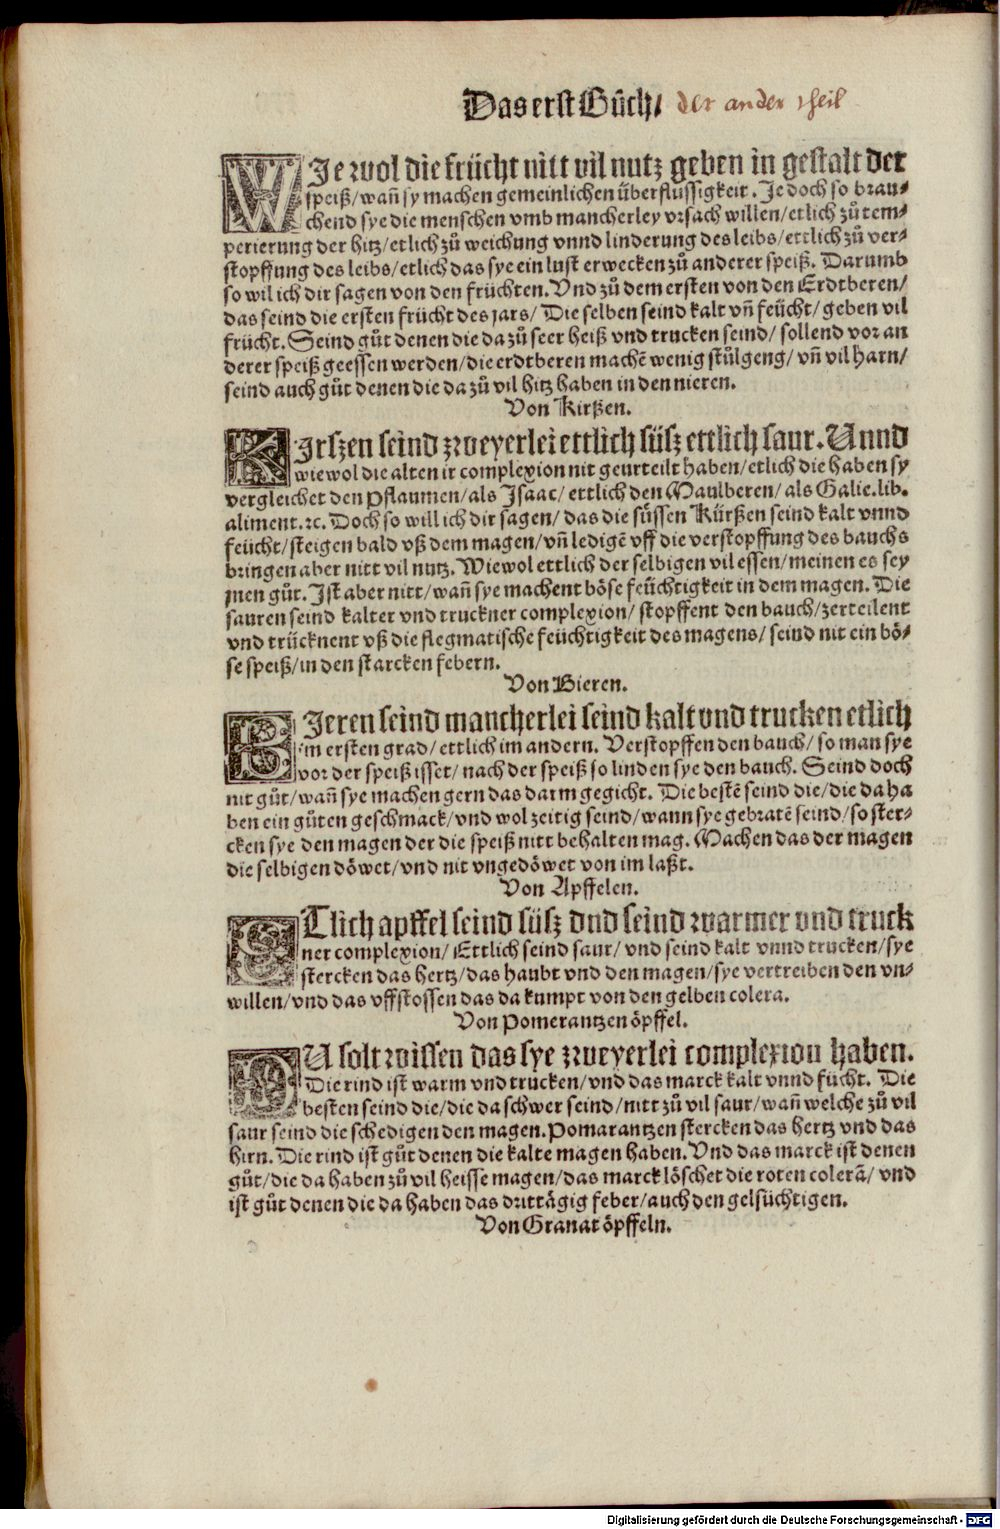 Das erst Bůch/ der ander theil
WIe wol die frücht nitt vil nutz geben in gestalt der
speiß/wañ sy machen gemeinlichen überflussigkeit. Je doch so brau⸗
chend sye die menschen vmb mancherley vrsach willen/etlich zů tem⸗
perierung der hitz/etlich zů weichung vnnd linderung des leibs/ettlich zů ver⸗
stopffung des leibs/etlich das sye ein lust erwecken zů anderer speiß. Darumb
so wil ich dir sagen von den früchten. Vnd zů dem ersten von den Erdtberen/
das seind die ersten frücht des jars/ Die selben seind kalt vñ feücht/geben vil
frücht. Seind gůt denen die da zů seer heiß vnd trucken seind/ sollend vor an
derer speiß geessen werden/die erdtberen machẽ wenig stůlgeng/ vñ vil harn/
seind auch gůt denen die da zů vil hitz haben in den nieren.
Von Kirßen.
KIrszen seind zweyerlei ettlich süsz ettlich saur. Vnnd
wiewol die alten ir complexion nit geurteilt haben/etlich die haben sy
vergleichet den Pflaumen/als Isaac/ ettlich den Maulberen/als Galie.lib.
aliment.ꝛc. Doch so will ich dir sagen/das die süssen Kürßen seind kalt vnnd
feücht/steigen bald vß dem magen/vñ ledigẽ vff die verstopffung des bauchs
bringen aber nitt vil nutz. Wiewol ettlich der selbigen vil essen/meinen es sey
jnen gůt. Ist aber nitt/wañ sye machent böse feüchtigkeit in dem magen. Die
sauren seind kalter vnd truckner complexion/ stopffent den bauch/zerteilent
vnd trücknent vß die flegmatische feüchtigkeit des magens/ seind nit ein bö⸗
se speiß/in den starcken febern.
Von Bieren.
BIeren seind mancherlei seind kalt vnd trucken etlich
im ersten grad/ettlich im andern. Verstopffen den bauch/so man sye
vor der speiß isset/nach der speiß so linden sye den bauch. Seind doch
nit gůt/wañ sye machen gern das darm gegicht. Die bestẽ seind die/die da ha
ben ein gůten geschmack/vnd wol zeitig seind/wann sye gebratẽ seind/so ster⸗
cken sye den magen der die speiß nitt behalten mag. Machen das der magen
die selbigen döwet/vnd nit vngedöwet von im laßt.
Von Apffelen.
ETlich apffel seind süsz vnd seind warmer vnd truck
ner complexion/Ettlich seind saur/ vnd seind kalt vnnd trucken/sye
stercken das hertz/das haubt vnd den magen/sye vertreiben den vn⸗
willen/vnd das vffstossen das da kumpt von den gelben colera.
Von Pomerantzen öpffel.
DU solt wissen das sye zweyerlei complexion haben.
Die rind ist warm vnd trucken/vnd das marck kalt vnnd fücht. Die
besten seind die/die da schwer seind/nitt zů vil saur/wañ welche zů vil
saur seind die schedigen den magen. Pomarantzen stercken das hertz vnd das
hirn. Die rind ist gůt denen die kalte magen haben. Vnd das marck ist denen
gůt/die da haben zů vil heisse magen/das marck löschet die roten colerã/ vnd
ist gůt denen die da haben das drittägig feber/auch den gelsüchtigen.
Von Granat öpffeln.
Digitalisierung gefördert durch die Deutsche Forschungsgemeinschaft - DFG